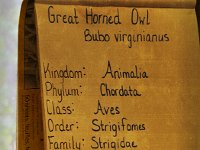 Great Horned Owl
Bubo virginianus
Kingdom: Animalia
Phylum: Chordata
Class: Aves
Order: Strigifomes
Family: Strigidae